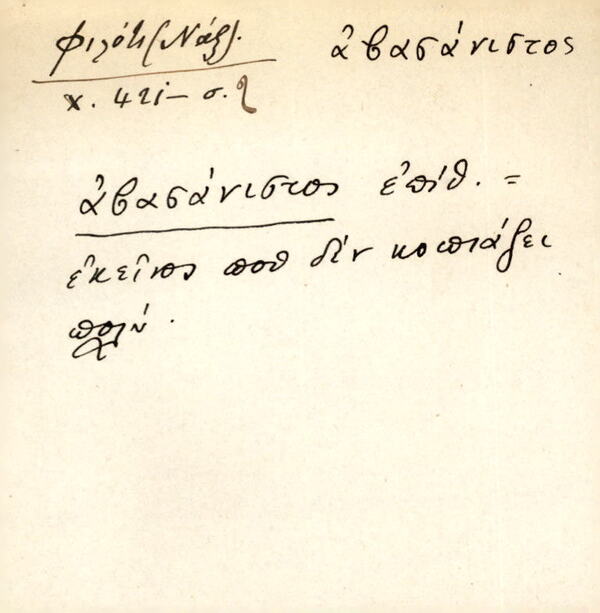 Φιλότι (Νάξ). ἀβασάνιστος
χ. 421 – σ. 2
ἀβασάνιστος ἐπίθ. =
ἐκεῖνος ποὺ δὲν κοπιάζει
πολύ.